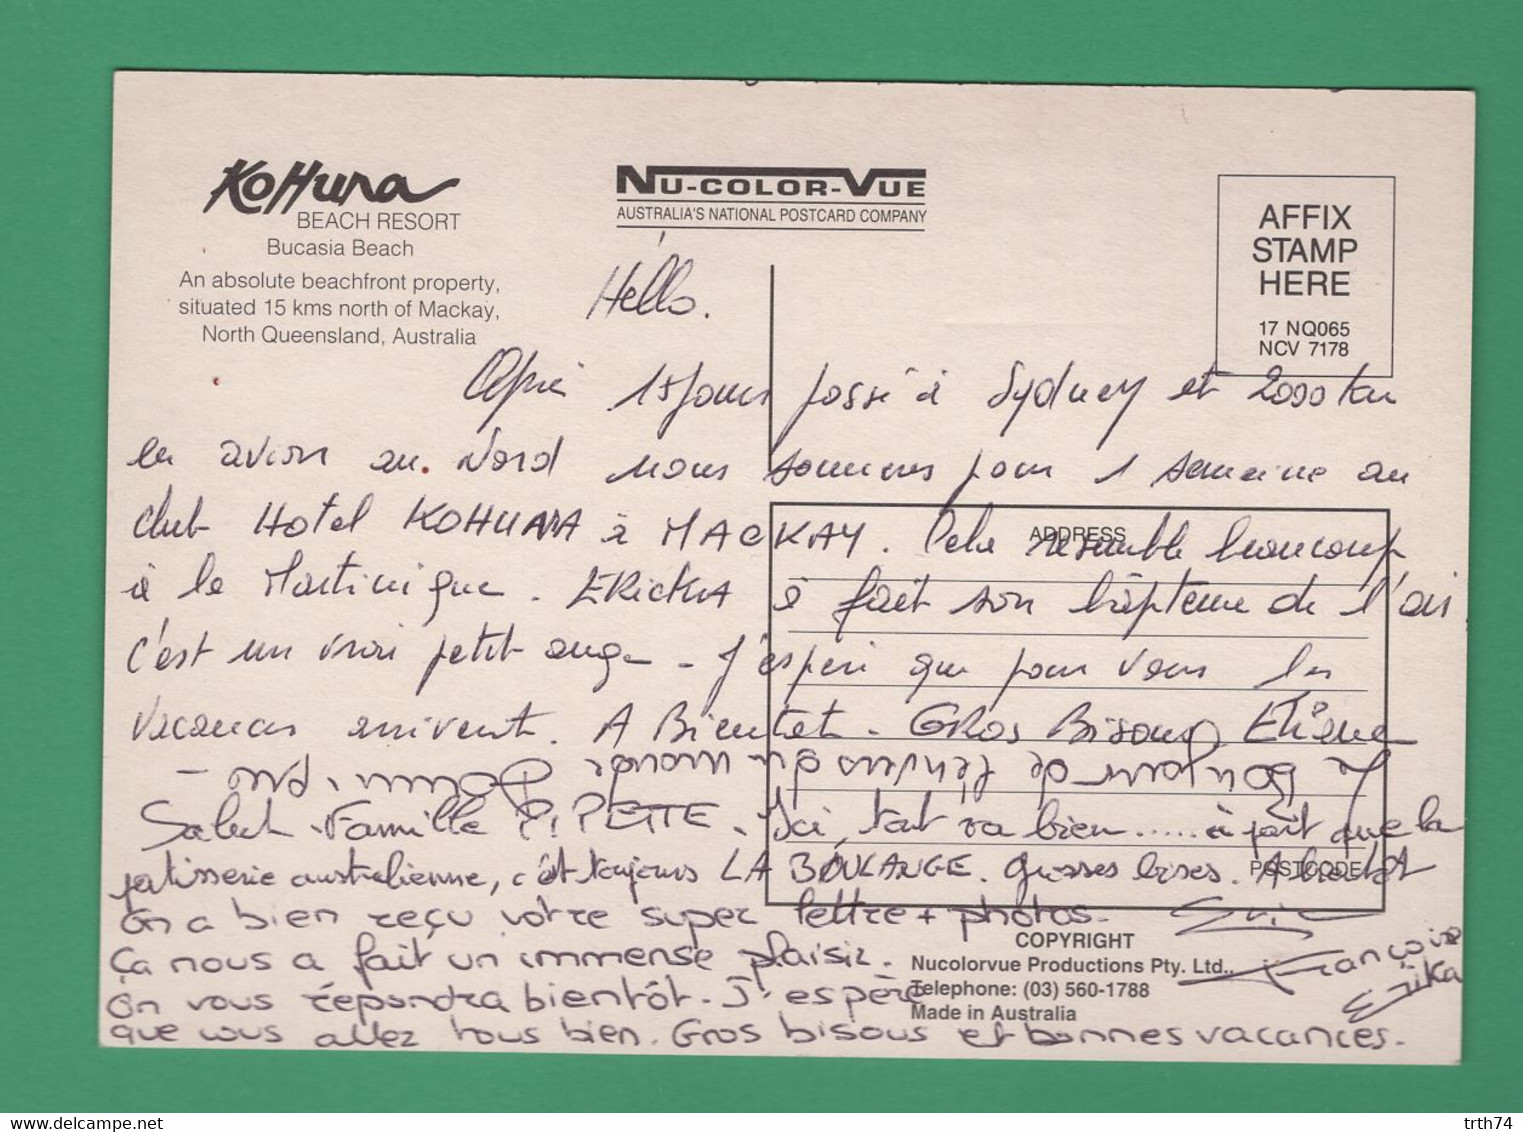 KoHuna
BEACH RESORT
Bucasia Beach
An absolute beachfront property,
situated 15 kms north of Mackay,
North Queensland, Australia
NU-COLOR-VUE
AUSTRALIA'S NATIONAL POSTCARD COMPANY
AFFIX
STAMP
HERE
17 NQ065
NCV 7178
Hello.
Après 15 jours passé à Sydney et 2000 km
en avion au Nord nous sommes pour 1 semaine au
club Hotel KOHUNA à MACKAY. Cela resemble beaucoup
à la Martinique. ERICKA à fait son bâpteme de l'air
c'est un vrai petit ange - J'esperi que pour vous les
vacances arrivent. A Bientot. Gros Bisous Etiène
Le Bonjour de l'enfant du monde
Salut Famille PIPETTE. Ici, tout va bien..... à part que la
patisserie australienne, c'est toujours LA BOULANGE. Grosses bises. A bientôt
Eric
On a bien reçu votre super lettre + photos.
Françoise
Ça nous a fait un immense plaisir.
Erika
On vous répondra bientôt. J'espère
que vous allez tous bien. Gros bisous et bonnes vacances.
ADDRESS
POSTCODE
COPYRIGHT
Nucolorvue Productions Pty. Ltd.,
Telephone: (03) 560-1788
Made in Australia
trth74